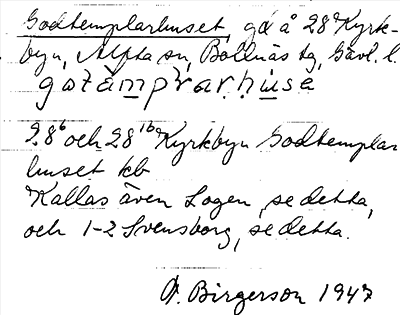 Godtemplarhuset, gd å 28 Kyrk-
byn, Alfta sn, Bollnäs tg, Gävl. l.
gotämprarhuse
28⁶ och 28¹⁶ Kyrkbyn Godtemplar
huset kb
Kallas även Logen, se detta,
och 1-2 Svensborg, se detta.
Birgerson 1947